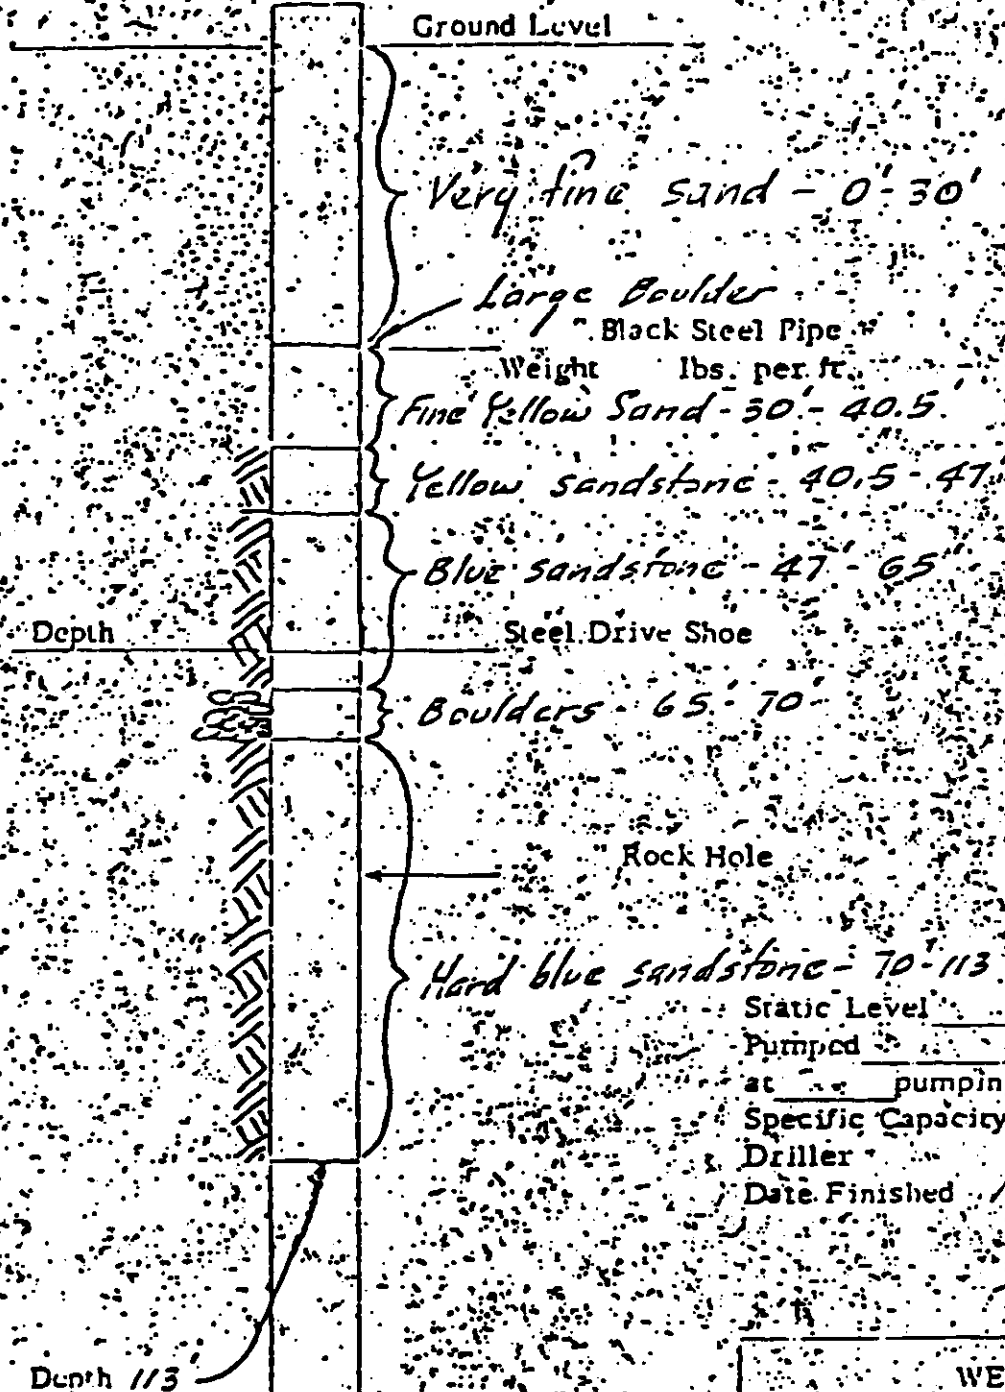 Ground Level
Very fine sand - 0'-30'
Large Boulder
Black Steel Pipe
Weight lbs. per ft.
Fine Yellow Sand - 30'- 40.5'
Yellow sandstone - 40.5 - 47'
Blue sandstone - 47' - 65'
Depth Steel Drive Shoe
Boulders - 65'- 70'
Rock Hole
Hard blue sandstone - 70'-113
Static Level
Pumped
at pumpin
Specific Capacity
Driller
Date Finished
Depth 113
WE